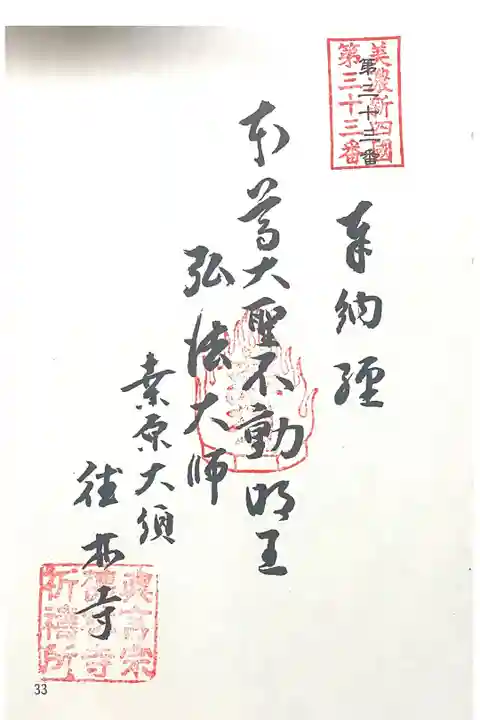 美濃新四國
第三十三番
第三十三番
奉納經
本尊大聖不動明王
弘法大師
桑原大須
徳林寺
真言宗
徳林寺
祈禱所
33